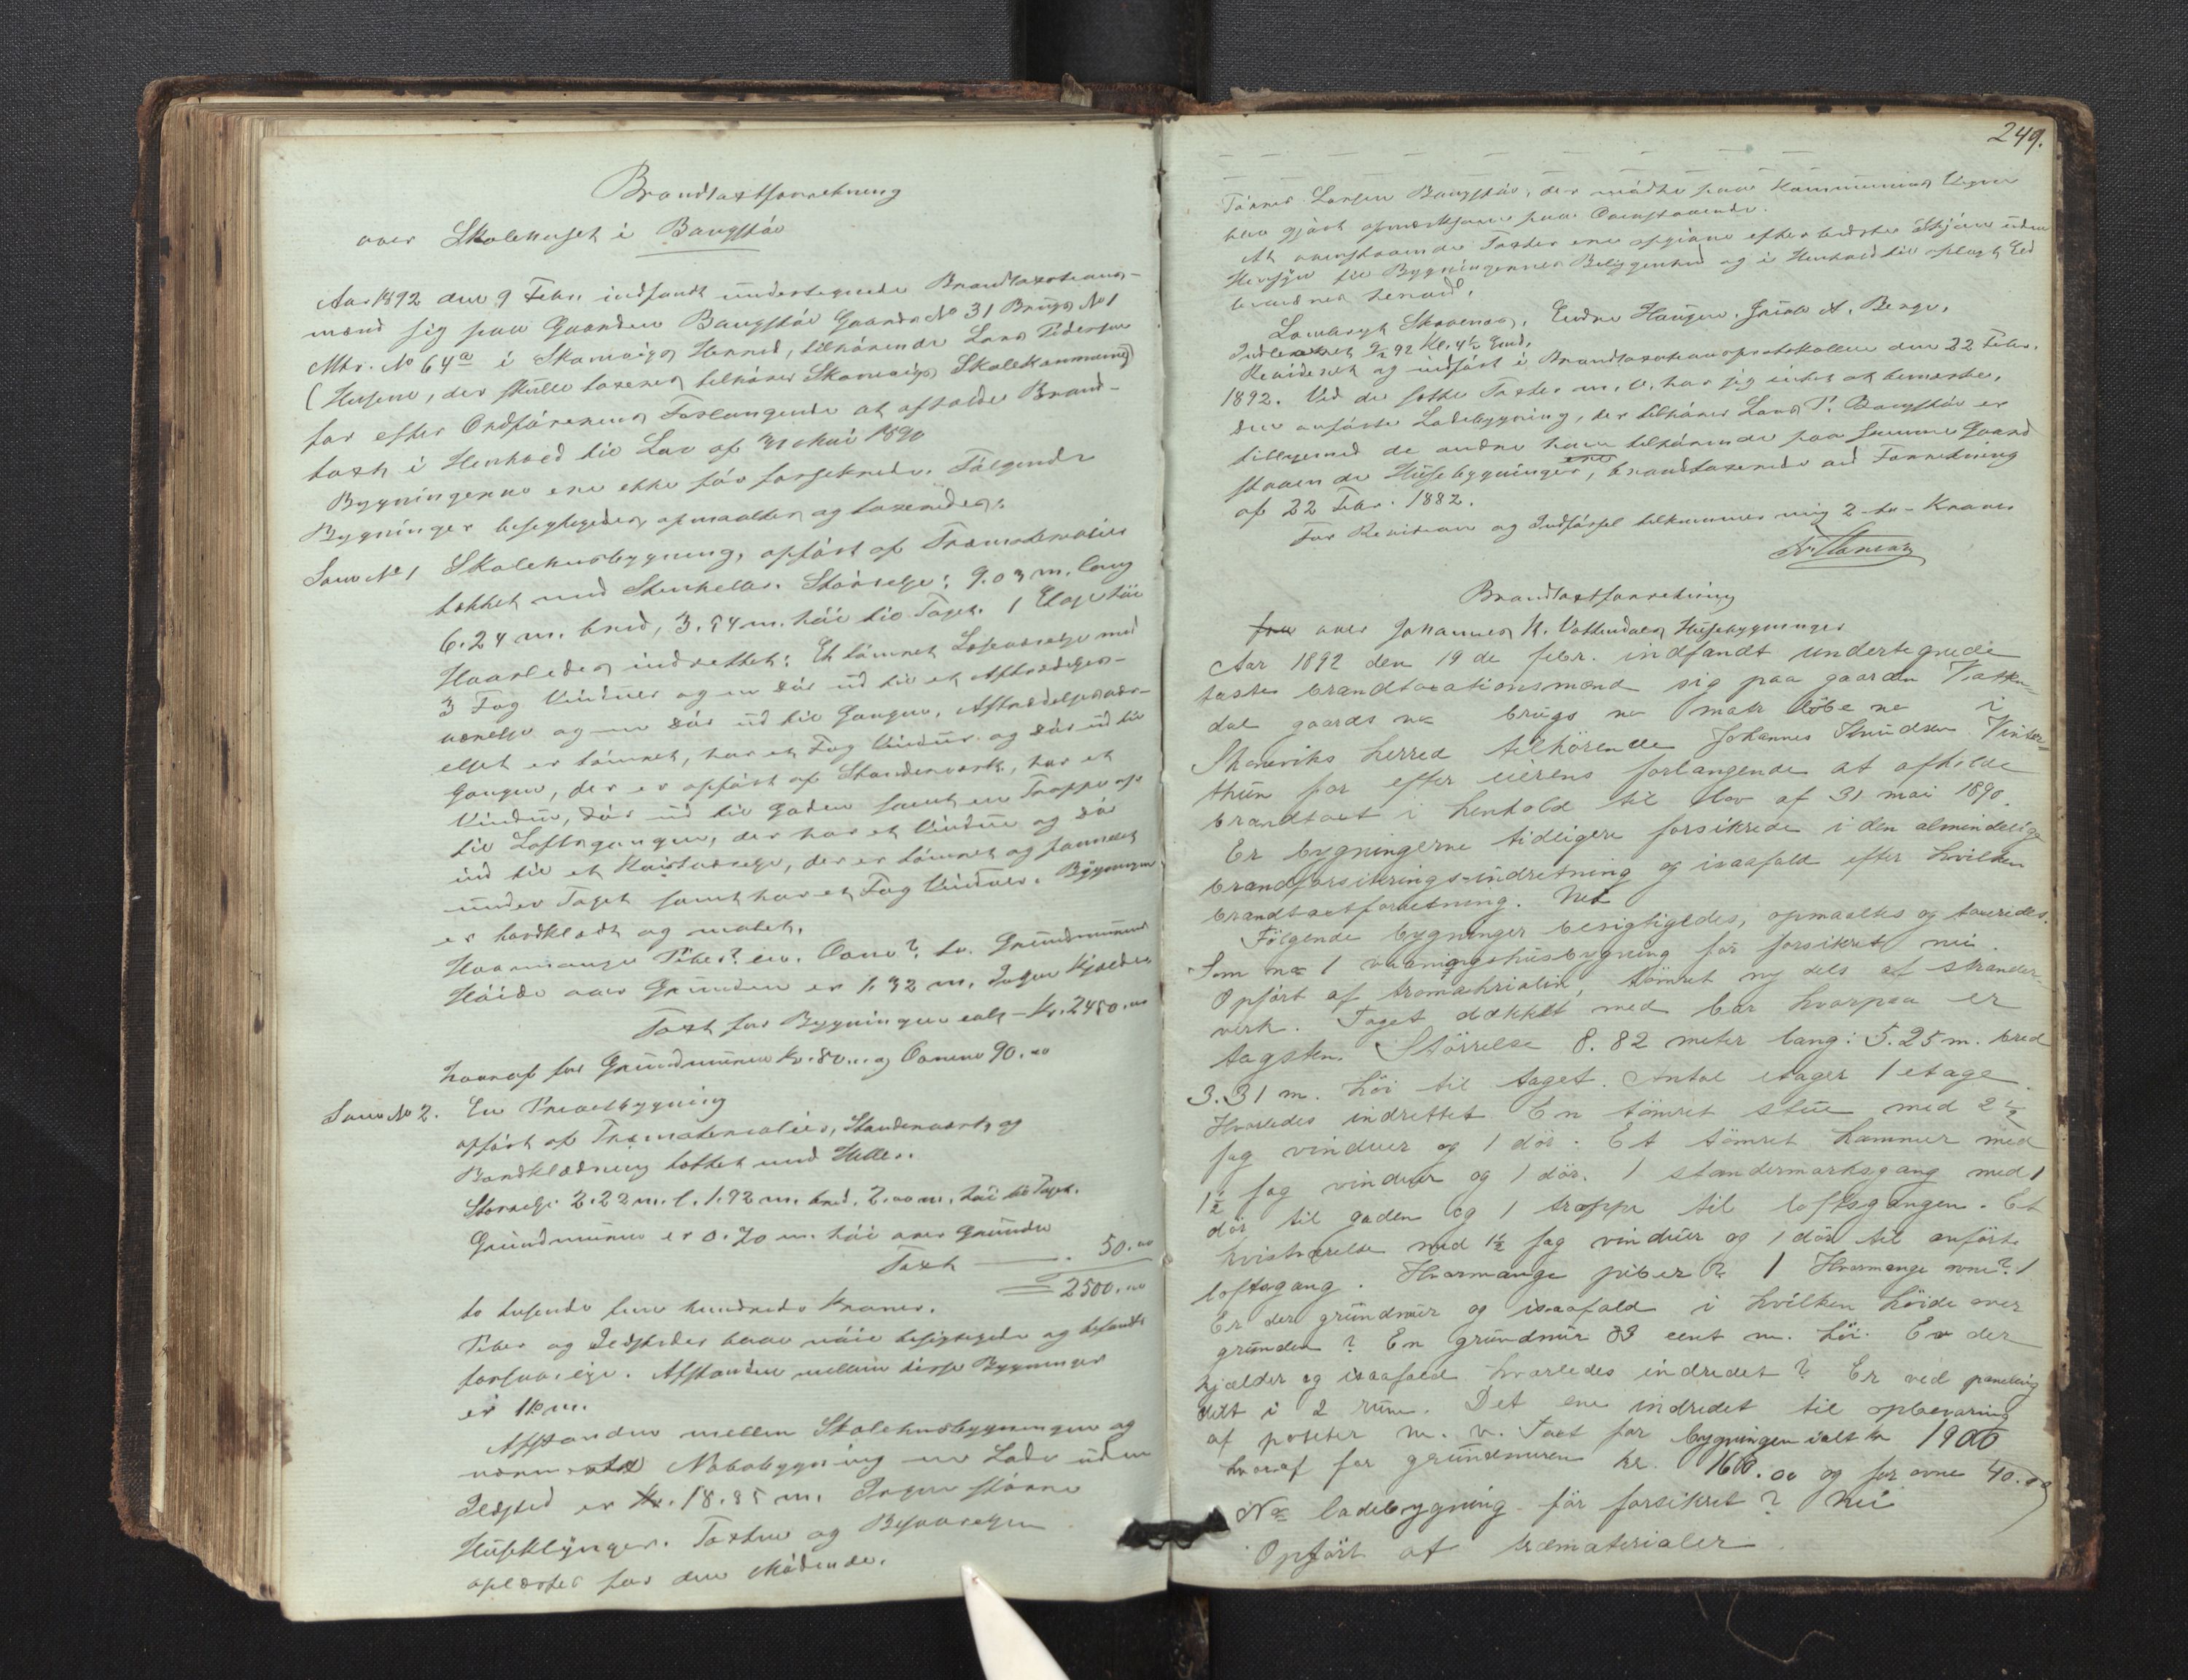 Brandtaxtforretning
over Skolehuset i Baugstøe
Aar 1892 den 9 Febr. indfandt undertegnede Brandtaxations-
mænd sig paa Gaarden Baugstøe Gaards No 31 Brugs No 1
Mtr. No 64a i Skonevigs Herred, tilhørende Lars Pedersen
(Husene, der skulle taxeres tilhører Skonevigs Skolekommune)
for efter Ordførerens Forlangende at afholde Brand-
taxt i Henhold til Lov af 31 Mai 1890
Bygningerne ere ikke før forsikrede. Følgende
Bygninger besigtigedes, opmaaltes og taxeredes:
Som No 1 Skolehusbygning, opført af Træmaterialier
tækket med Stenheller. Størrelse: 9.03 m. lang
6.24 m. bred, 3.54 m. høi til Taget. 1 Etage høi
Hvorledes indrettet: Et tømret Læseværelse med
3 Fag Vinduer og en Dør ud til et Aftrædelses-
værelse og en Dør ud til Gangen, Aftrædelsesvær-
elset er tømret, har et Fag Vinduer og Dør ud til
Gangen, der er opført af Standerværk, har et
Vindu, Dør ud til Gaden samt en Trappe op
til Loftsgangen, der har et Vindu og Dør
ind til et Kvistværelse, der er tømret og panelet
under Taget samt har et Fag Vinduer. Bygningen
er bordklædt og malet.
Hvormange Piber? en. Ovne? to. Grundmurens
Høide over Grunden er 1.32 m. Ingen Kjælder
Taxt for Bygningen ialt — Kr. 2450.00
hvoraf for Grundmuren Kr. 80.00 og Ovnene 90.00
Som No 2. En Privetbygning
opført af Træmaterialier, Standerværk og
Bordklædning tækket med Heller.
Størrelse 2.22 m. l. 1.92 m. bred. 2.00 m. høi til Taget.
Grundmuren er 0.70 m. høi over Grunden
Taxt — . 50.00
2500.00
to tusende fem hundrede Kroner.
Piber og Ildsteder bleve nøie besigtigede og befandtes
forsvarlige. Afstanden mellem disse Bygninger
er 10 m.
Afstanden mellem Skolehusbygningen og
nærmeste Nabobygning en Lade uden
Ildsted er 18.85 m. Ingen større
Huseklynger. Taxten og Besvarelsen
oplæstes for den Mødende.
249.
Tørres Larsen Baugstøe, der mødte paa Kommunens Vegne
blev gjort opmærksom paa Ovenstaaende.
At ovenstaaende Taxter ere afgivne efter bedste Skjøn uden
Hensyn til Bygningernes Beliggenhed og i Henhold til aflagt Ed
bevidnes herved.
Lambregt Skaanes, Endre Haugen, A. Berge.
Indleveret 9/2 92 Kl. 4½ Emd.
Revideret og indført i Brandtaxationsprotokollen den 22 Febr.
1892. Ved de satte Taxter m. v. har jeg intet at bemærke.
Den anførte Ladebygning, der tilhører Lars P. Baugstøe er
tilligemed de andre ham tilhørende paa samme Gaard
staaende Husebygninger, ere brandtaxerede ved Forretning
af 22 Febr. 1882.
For Revision og Indførsel tilkommer mig 2 – to – Kroner
Brandtaxtforretning
over Johannes K. Vattendals Husebygninger
Aar 1892 den 19 de febr. indfandt undertegnede
taster brandtaxationsmænd sig paa gaarden Vatten-
dal gaards no brugs no matr løbe no i
Skoneviks herred tilhørende Johannes Knudsen Vinter-
thun for efter eierens forlangende at afholde
brandtaxt i henhold til lov af 31 mai 1890.
Er bygningerne tidligere forsikrede i den almindelige
brandforsikrings-indretning og isaafald efter hvilken
brandtaxtforretning. Nei
Følgende bygninger besigtigedes, opmaaltes og taxeredes.
Som no 1 vaaningshusbygning før forsikret nei.
Opført af træmaterialier, tømret ny dels af stander-
verk. Taget dækket med bar hvorpaa er
tagsten. Størrelse 8.82 meter lang: 5.25 m. bred
3.31 m. høi til taget. Antal etager 1 etage
Hvorledes indrettet En tømret stue med 2½
fag vinduer og 1 dør. Et tømret kammer med
1½ fag vinduer og 1 dør. 1 standerværksgang med 1
dør til gaden og 1 trappe til loftsgangen. Et
kvistværelse med 1½ fag vinduer og 1 dør til anførte
loftsgang. Hvormange piber? 1 Hvormange ovne? 1
Er der grundmur og isaafald i hvilken høide over
grunden? En grundmur 83 cent m. høi. Er der
kjælder og isaafald hvorledes indredet? Er ved paneling
delt i 2 rum. Det ene indredet til opbevaring
af poteter m. v. Taxt for bygningen ialt kr 1900
hvoraf for grundmuren kr. 160.00 og for ovne 40.00
No ladebygning før forsikret? Nei
Opført af træmaterialer